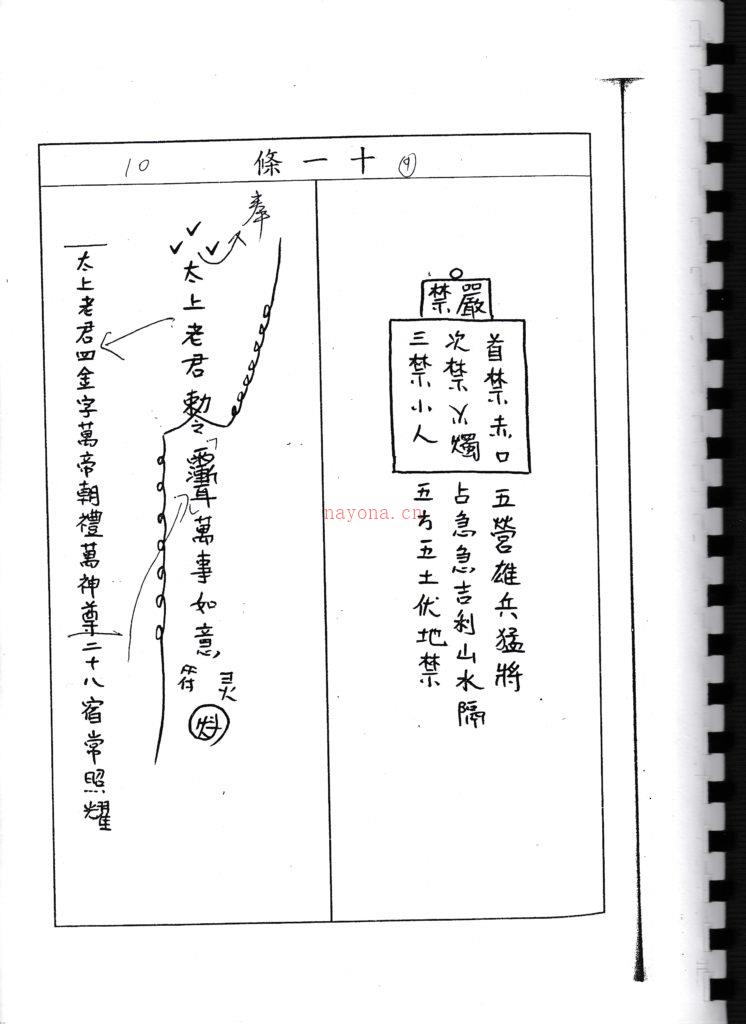 條一十
⑨
10
嚴禁
首禁赤口
次禁火燭
三禁小人
五營雄兵猛將
占急急吉利山水隔
五方五土伏地禁
奉
太上老君勅令
萬事如意
符
灵
太上老君四金字萬帝朝禮萬神尊二十八宿常照耀
nayona.cn